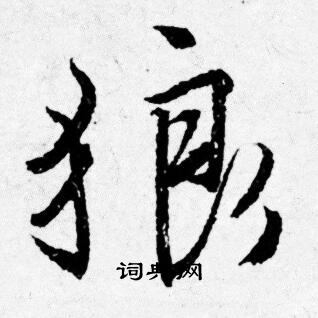 狼
词典网